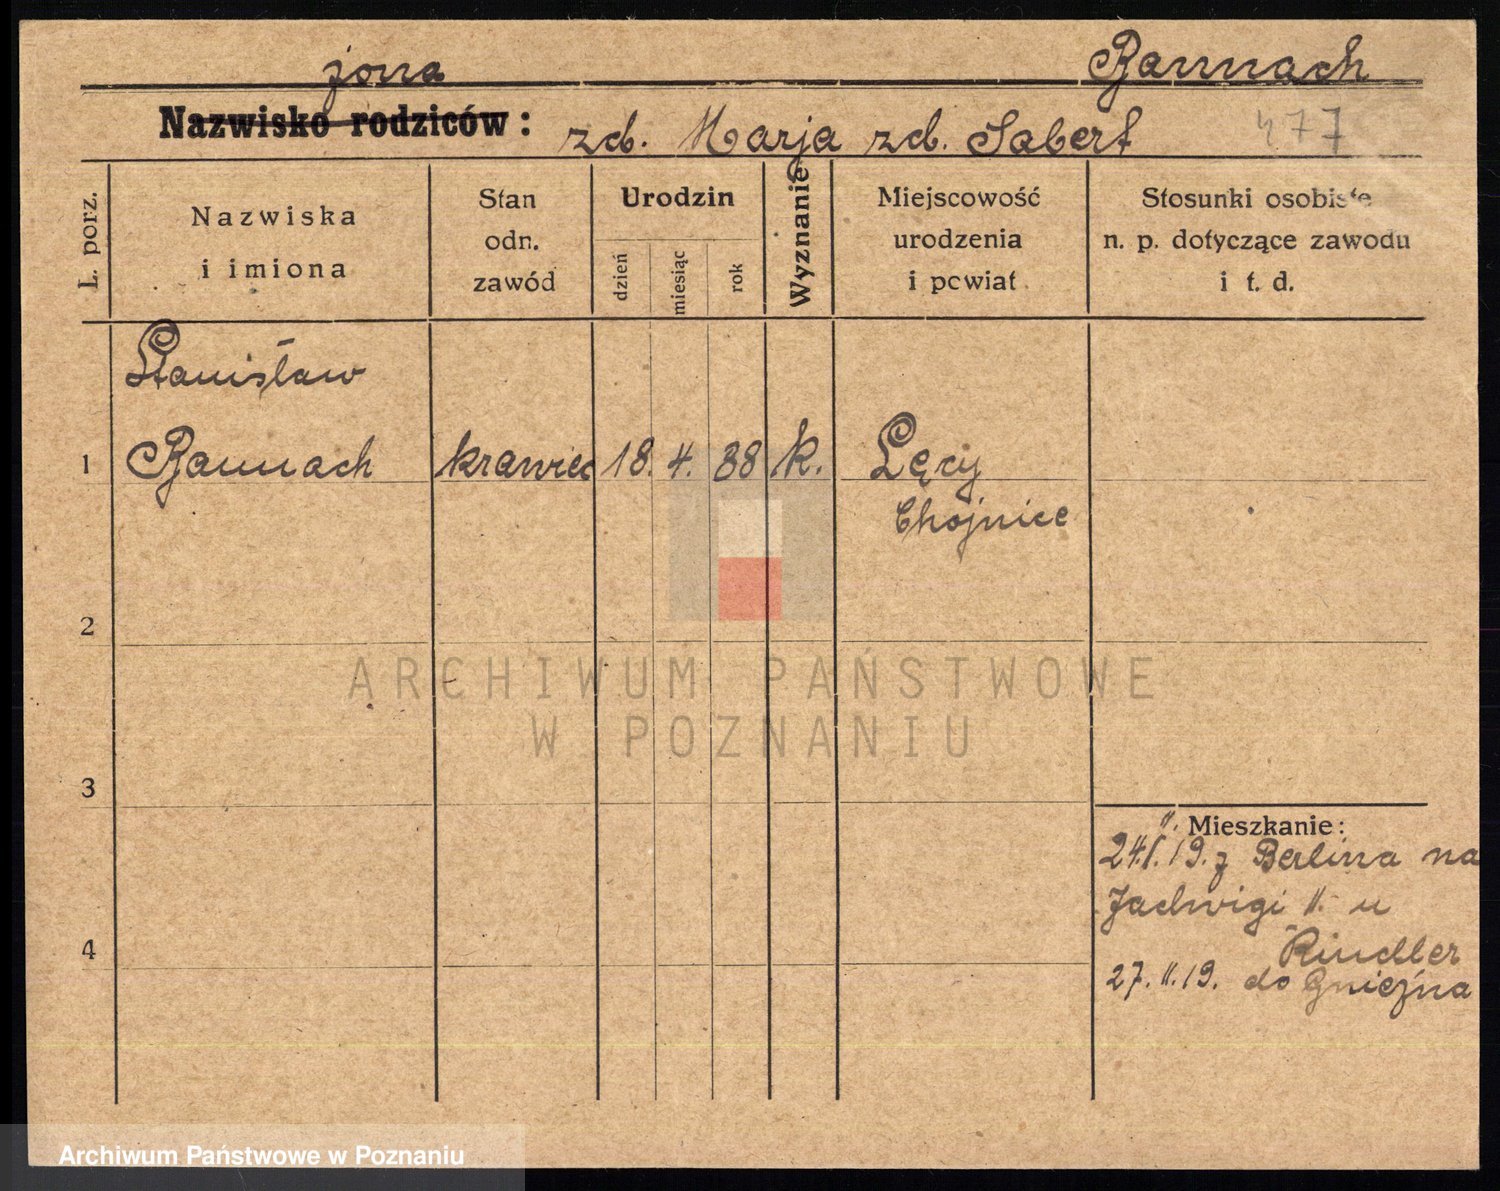 żona Bannach
Nazwisko rodziców: zd. Marja zd. Sabert
477
L. porz.
Nazwiska
i imiona
Stan
odn.
zawód
Urodzin
dzień
miesiąc
rok
Wyznanie
Miejscowość
urodzenia
i powiat
Stosunki osobiste
n. p. dotyczące zawodu
i t. d.
Stanisław
1 Bannach krawiec 18. 4. 88 k. Lęcy
Chojnice
2
3
4
Mieszkanie:
24.II.19. z Berlina na
Jadwigi 11. u
Rindler
27.II.19. do Gniezna
ARCHIWUM PAŃSTWOWE
W POZNANIU
Archiwum Państwowe w Poznaniu